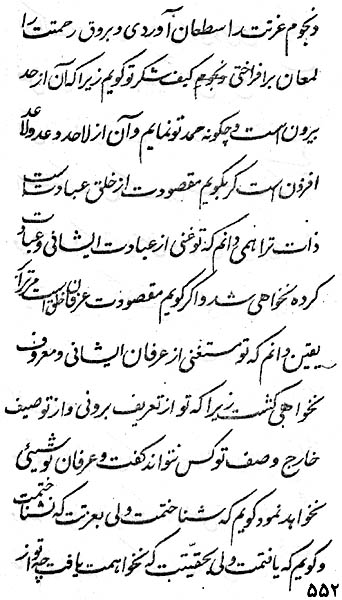 و نجوم عزتت را سطعان آوردی و بروق رحمتت را
لمعان برافراختی و نجوم کیف شکر تو گویم زیرا که آن از حد
بیرون است و چگونه حمد تو نمایم و آن از لاحد و عد و لاعد
افزون است گر بگویم مقصودت از خلق عبادت است
ذات ترا همی دانم که تو غنی از عبادت ایشانی و عبادت
کرده نخواهی شد و اگر گویم مقصودت عرفان خلق است مر ترا
یقین دانم که تو مستغنی از عرفان ایشانی و معروف
نخواهی گشت زیرا که تو از تعریف برونی و از توصیف
خارج وصف تو کس نتواند گفت و عرفان تو شیئی
نخواهد نمود گویم که شناختمت ولی بعزتت که نشناختمت
و گویم که یافتمت ولی بحقیقت که نخواهمت یافت چه تو از
۵۵۲